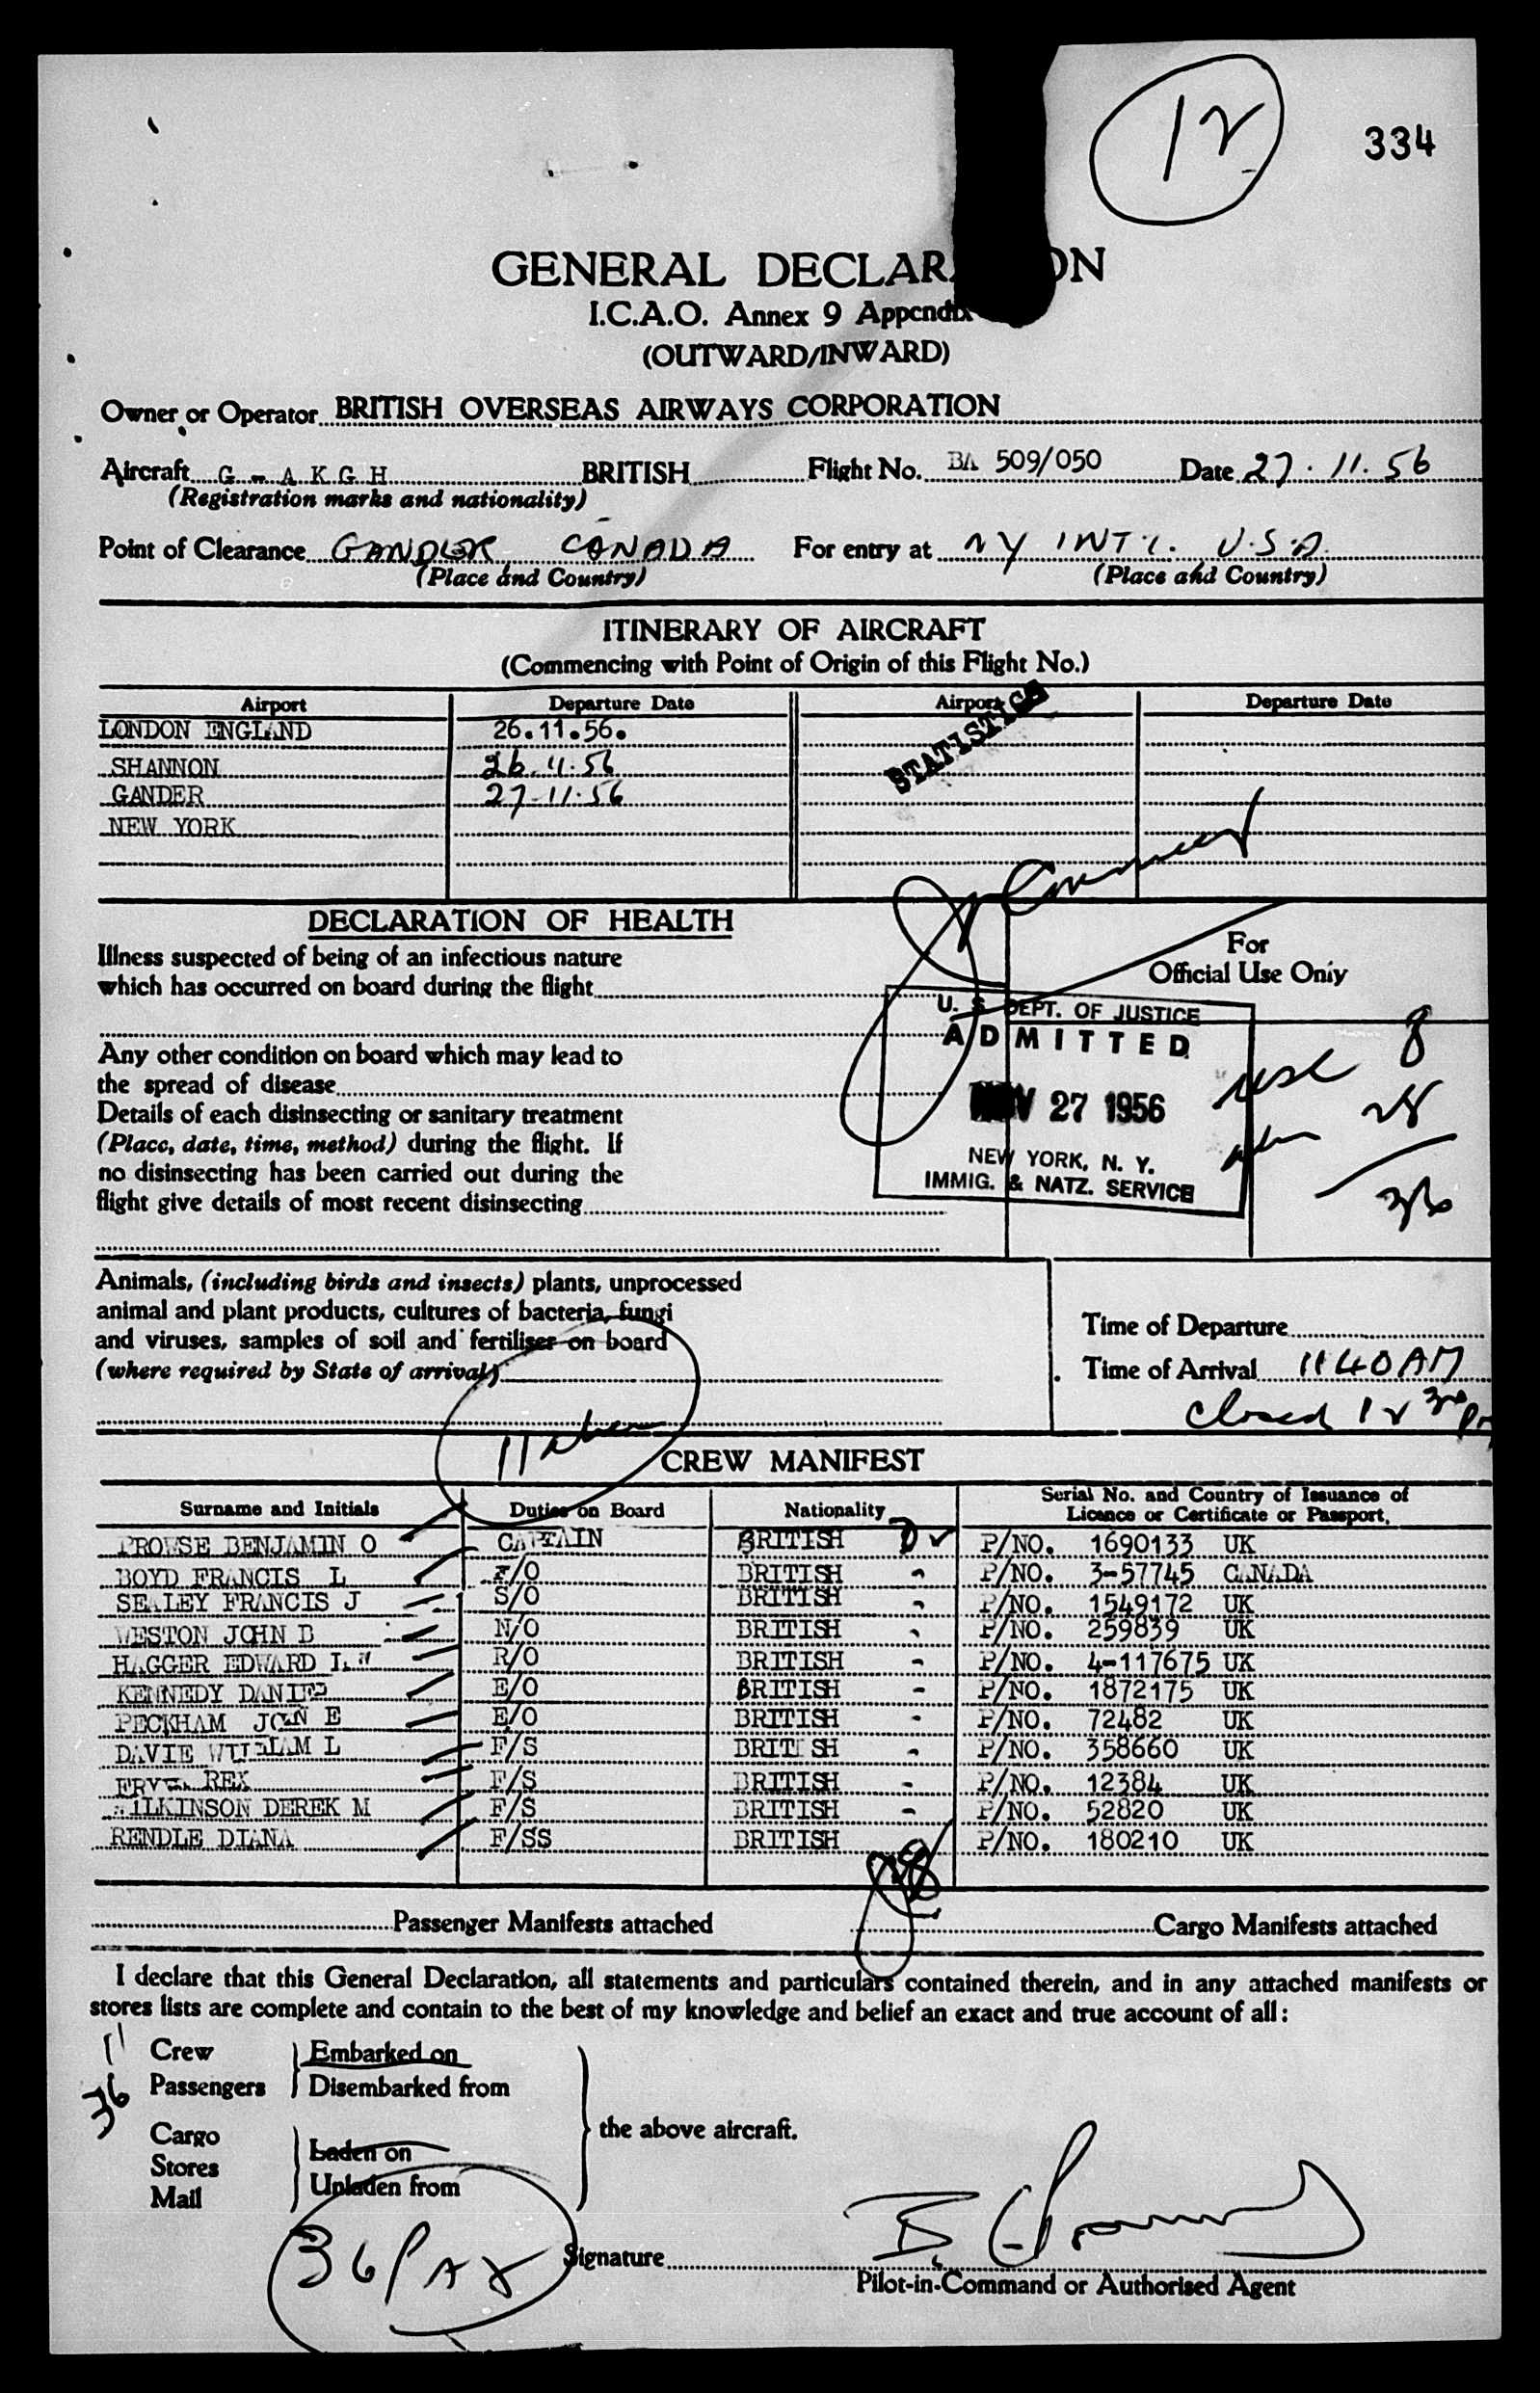 12
334
GENERAL DECLAR ON
I.C.A.O. Annex 9 Appendix
(OUTWARD/INWARD)
Owner or Operator BRITISH OVERSEAS AIRWAYS CORPORATION
Aircraft G - A K G H BRITISH Flight No. BA 509/050 Date 27.11.56
(Registration marks and nationality)
Point of Clearance GANDER CANADA For entry at NY INT'L. U.S.A.
(Place and Country) (Place and Country)
ITINERARY OF AIRCRAFT
(Commencing with Point of Origin of this Flight No.)
Airport Departure Date Airport Departure Date
LONDON ENGLAND 26.11.56.
SHANNON 26.11.56
GANDER 27-11-56
NEW YORK
STATISTICS
DECLARATION OF HEALTH
For
Official Use Only
Illness suspected of being of an infectious nature
which has occurred on board during the flight
Any other condition on board which may lead to
the spread of disease
Details of each disinsecting or sanitary treatment
(Place, date, time, method) during the flight. If
no disinsecting has been carried out during the
flight give details of most recent disinsecting
U. S. DEPT. OF JUSTICE
ADMITTED
NOV 27 1956
NEW YORK, N. Y.
IMMIG. & NATZ. SERVICE
usc 8
28
36
Animals, (including birds and insects) plants, unprocessed
animal and plant products, cultures of bacteria, fungi
and viruses, samples of soil and fertiliser on board
(where required by State of arrival)
Time of Departure
Time of Arrival 1140 AM
closed 12 30 pm
11 alien
CREW MANIFEST
Surname and Initials Duties on Board Nationality Serial No. and Country of Issuance of Licence or Certificate or Passport.
PROWSE BENJAMIN O CAPTAIN BRITISH P/NO. 1690133 UK
BOYD FRANCIS L F/O BRITISH P/NO. 3-57745 CANADA
SEALEY FRANCIS J S/O BRITISH P/NO. 1549172 UK
WESTON JOHN B N/O BRITISH P/NO. 259839 UK
HAGGER EDWARD R/O BRITISH P/NO. 4-117675 UK
KENNEDY E/O BRITISH P/NO. 1872175 UK
PECKHAM E E/O BRITISH P/NO. 72482 UK
DAVIE WILLIAM L F/S BRITISH P/NO. 358660 UK
REX F/S BRITISH P/NO. 12384 UK
WILKINSON DEREK M F/S BRITISH P/NO. 52820 UK
RENDLE DIANA F/SS BRITISH P/NO. 180210 UK
Passenger Manifests attached Cargo Manifests attached
I declare that this General Declaration, all statements and particulars contained therein, and in any attached manifests or
stores lists are complete and contain to the best of my knowledge and belief an exact and true account of all:
11 Crew Embarked on
36 Passengers Disembarked from
the above aircraft.
Cargo Laden on
Stores
Mail Unladen from
36 PAX
Signature
Pilot-in-Command or Authorised Agent